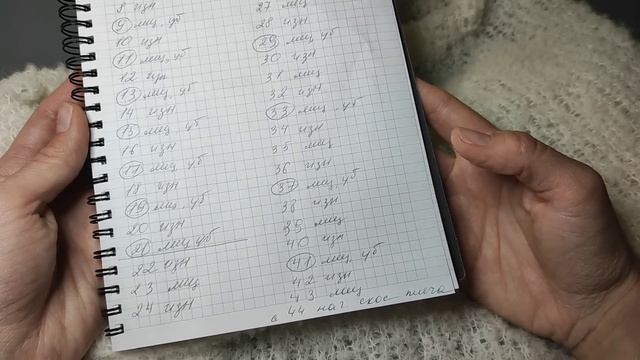 8 изн
9 лиц. уб
10 изн
11 лиц. уб
12 изн
13 лиц. уб
14 изн
15 лиц уб
16 изн
17 лиц. уб
18 изн
19 лиц. уб
20 изн
21 лиц уб
22 изн
23 лиц
24 изн
27 лиц
28 изн
29 лиц уб
30 изн
31 лиц
32 изн
33 лиц. уб
34 изн
35 лиц
36 изн
37 лиц. уб
38 изн
39 лиц
40 изн
41 лиц. уб
42 изн
43 лиц
в 44 нач скос плеча